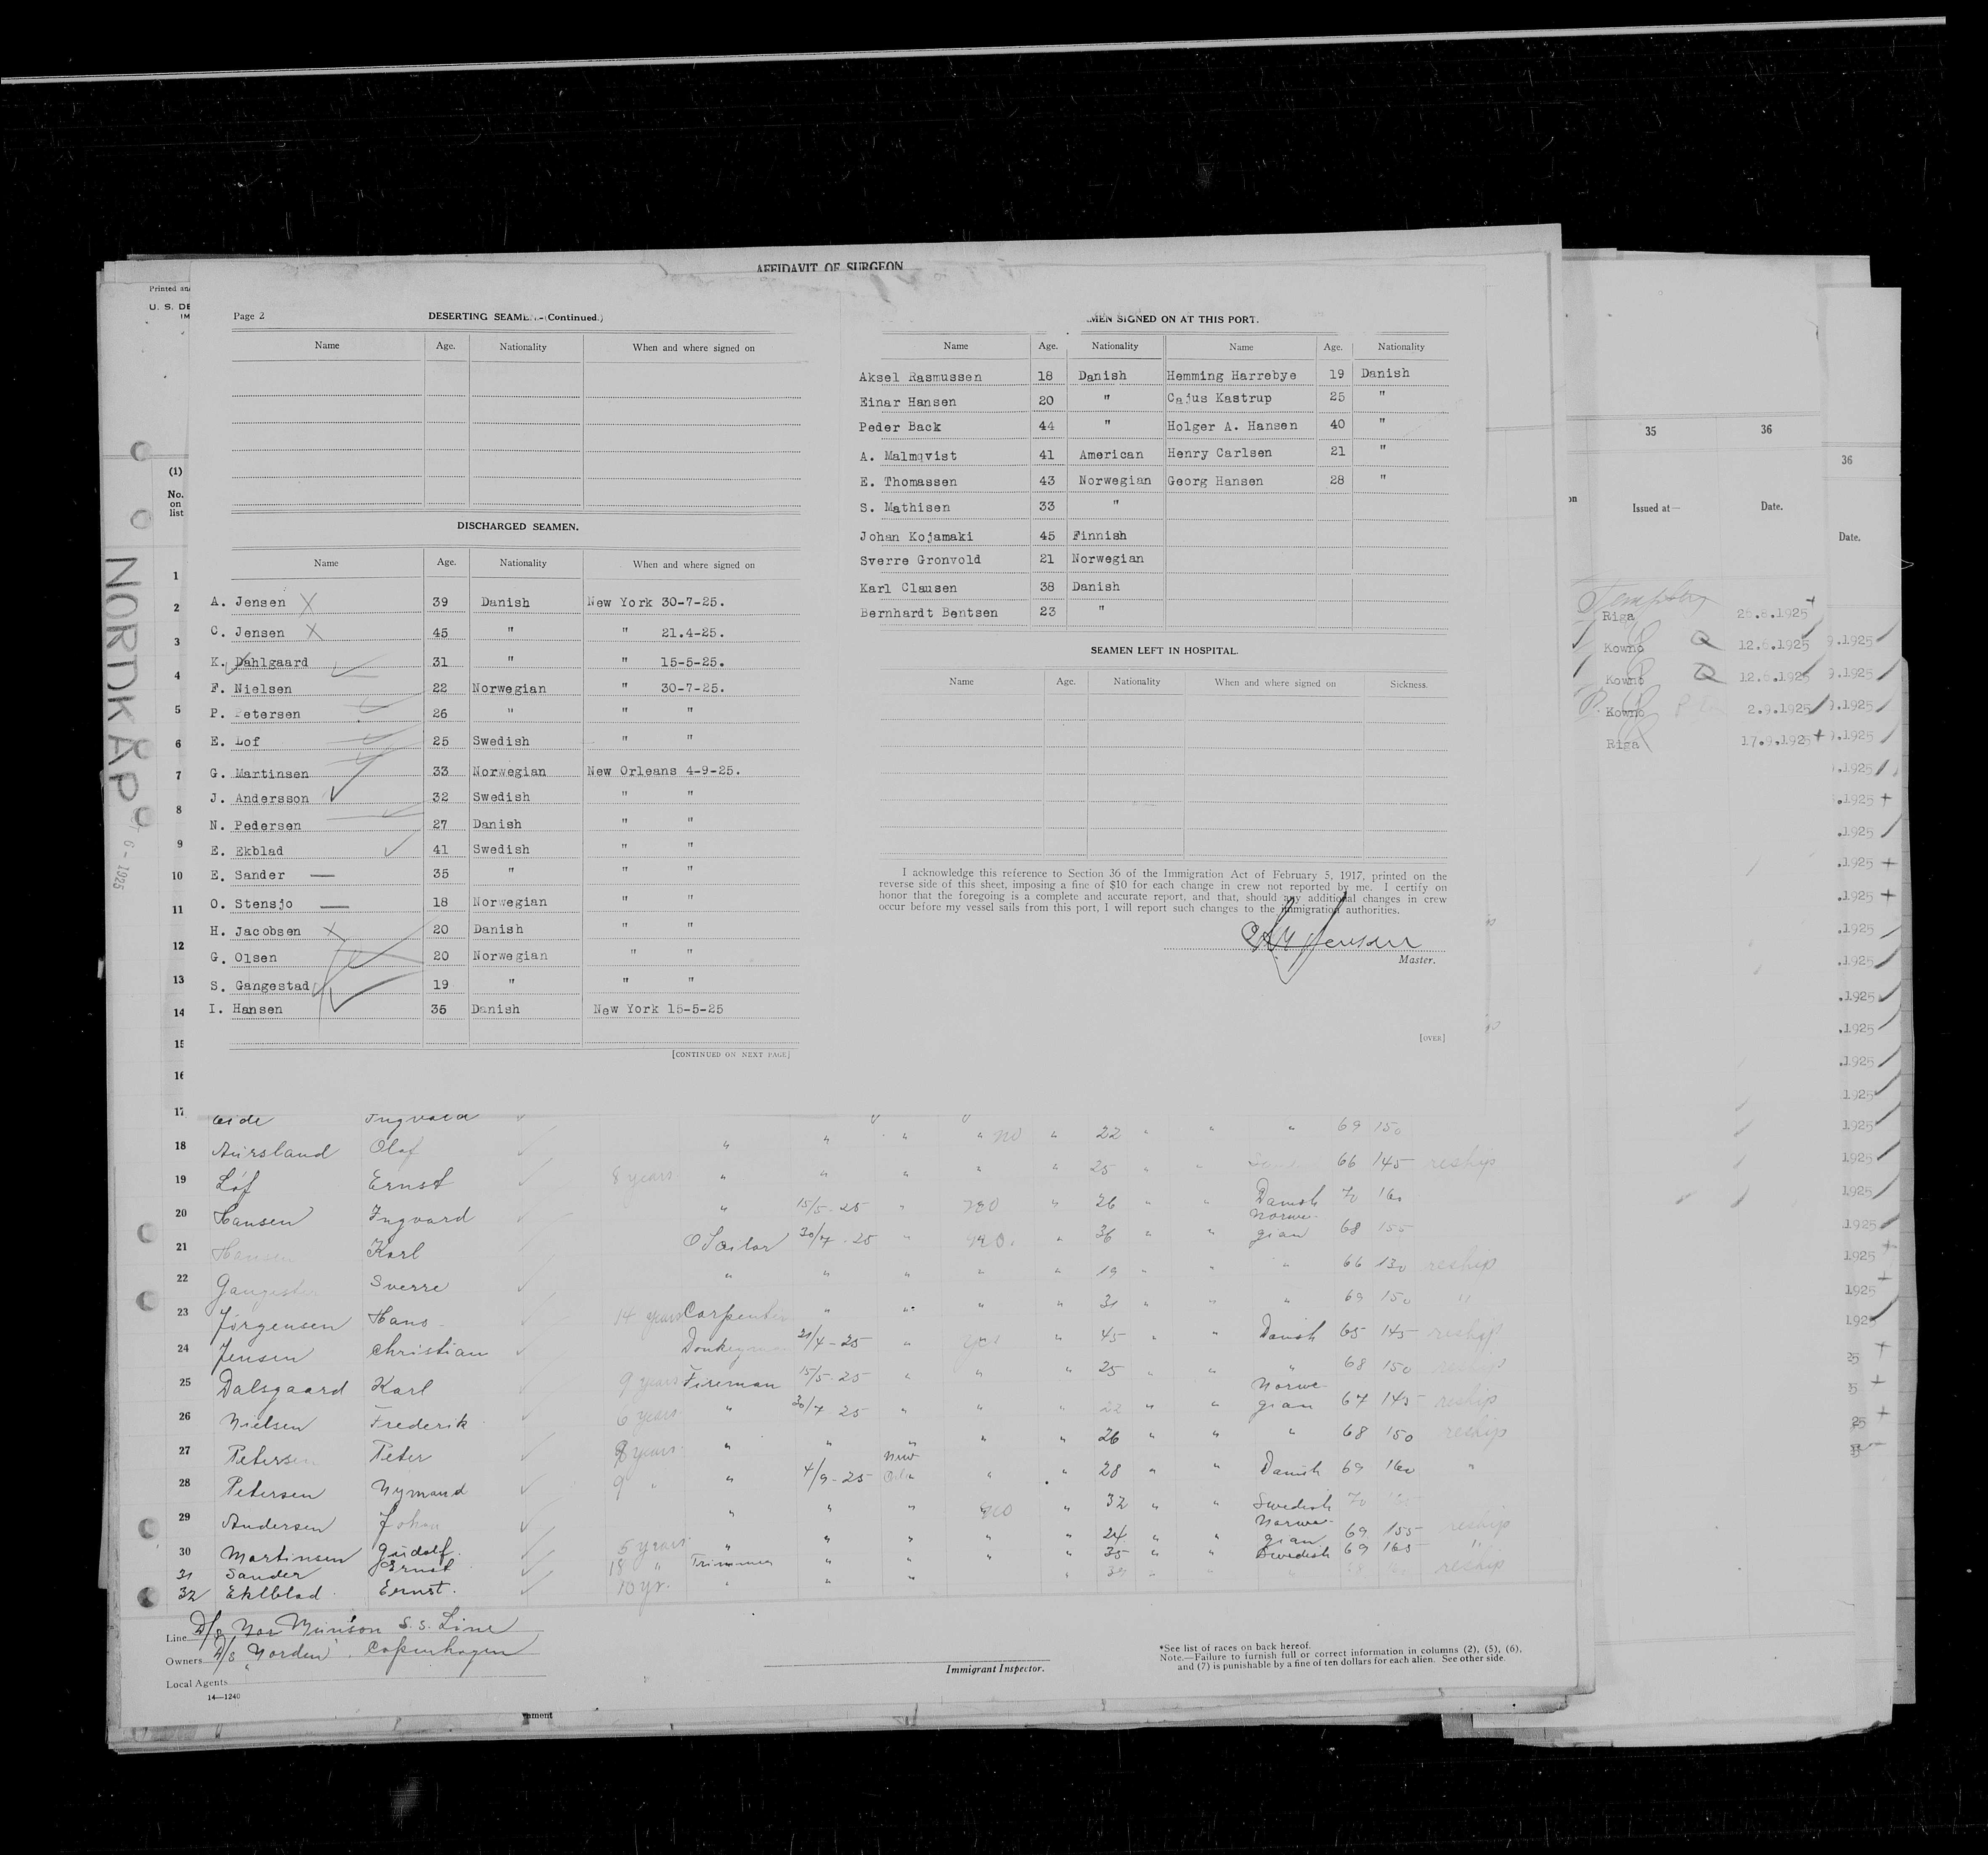 AFFIDAVIT OF SURGEON
Printed an
U. S. DE
IM
Page 2
DESERTING SEAMEN-(Continued.)
Name Age. Nationality When and where signed on
DISCHARGED SEAMEN.
Name Age. Nationality When and where signed on
A. Jensen X 39 Danish New York 30-7-25.
C. Jensen X 45 " " 21.4-25.
K. Dahlgaard 31 " " 15-5-25.
F. Nielsen 22 Norwegian " 30-7-25.
P. Petersen 26 " " "
E. Lof 25 Swedish " "
G. Martinsen 33 Norwegian New Orleans 4-9-25.
J. Andersson 32 Swedish " "
N. Pedersen 27 Danish " "
E. Ekblad 41 Swedish " "
E. Sander 35 " " "
O. Stensjo 18 Norwegian " "
H. Jacobsen X 20 Danish " "
G. Olsen 20 Norwegian " "
S. Gangestad 19 " " "
I. Hansen 36 Danish New York 15-5-25
[CONTINUED ON NEXT PAGE]
MEN SIGNED ON AT THIS PORT.
Name Age. Nationality Name Age. Nationality
Aksel Rasmussen 18 Danish Hemming Harrebye 19 Danish
Einar Hansen 20 " Cajus Kastrup 25 "
Peder Back 44 " Holger A. Hansen 40 "
A. Malmqvist 41 American Henry Carlsen 21 "
E. Thomassen 43 Norwegian Georg Hansen 28 "
S. Mathisen 33 "
Johan Kojamaki 45 Finnish
Sverre Gronvold 21 Norwegian
Karl Clausen 38 Danish
Bernhardt Bentsen 23 "
SEAMEN LEFT IN HOSPITAL.
Name Age. Nationality When and where signed on Sickness.
I acknowledge this reference to Section 36 of the Immigration Act of February 5, 1917, printed on the
reverse side of this sheet, imposing a fine of $10 for each change in crew not reported by me. I certify on
honor that the foregoing is a complete and accurate report, and that, should any additional changes in crew
occur before my vessel sails from this port, I will report such changes to the immigration authorities.
Jensen
Master.
[OVER]
(1)
No.
on
list
1
2
3
4
5
6
7
8
9
10
11
12
13
14
15
16
17 Eide Ingvald
18 Aursland Olaf " " " " no " 22 " " " 69 150
19 Löf Ernst 8 years " " " " " 25 " " 66 145 reship
20 Hansen Ingvard " 15/5-25 " no " 26 " " Danish 70 160
21 Hansen Karl O Sailor 30/7-25 " no. " 36 " " Norwegian 68 155
22 Gangestad Sverre " " " " " 19 " " " 66 130 reship
23 Jørgensen Hans 14 years Carpenter " " " " 31 " " " 69 150 "
24 Jensen Christian Donkeyman 21/4-25 " yes " 45 " " Danish 65 145 reship
25 Dalsgaard Karl 9 years Fireman 15/5-25 " " " 25 " " " 68 150 reship
26 Nielsen Frederik 6 years " 30/7-25 " " " 22 " " Norwegian 67 145 reship
27 Petersen Peter 8 years " " " " " 26 " " " 68 150 reship
28 Petersen Nymand 9 " " 4/9-25 New Orl. " " 28 " " Danish 69 160 "
29 Andersen Johan " " " no " 32 " " Swedish 70
30 Martinsen Gudolf 5 years " " " " " 24 " " Norwegian 69 155 reship
31 Sander Ernst 18 " Trimmer " " " " 35 " " Swedish 69 165 "
32 Eklblad Ernst. 10 yr. " " " " 39 " " " reship
Line D/s Nor Munson S.S. Line
Owners D/s "Norden". Copenhagen
Local Agents
14—1240
Immigrant Inspector.
*See list of races on back hereof.
Note.—Failure to furnish full or correct information in columns (2), (5), (6),
and (7) is punishable by a fine of ten dollars for each alien. See other side.
NORDKAP
6-1925
35 36
on Issued at— Date.
Riga 26.8.1925
Kowno 12.6.1925
Kowno 12.6.1925
Kowno 2.9.1925
Riga 17.9.1925
36
Date.
9.1925
9.1925
9.1925
9.1925
.1925
.1925
.1925
.1925
.1925
.1925
.1925
.1925
.1925
.1925
1925
1925
1925
1925
1925
1925
1925
1925
25
5
25